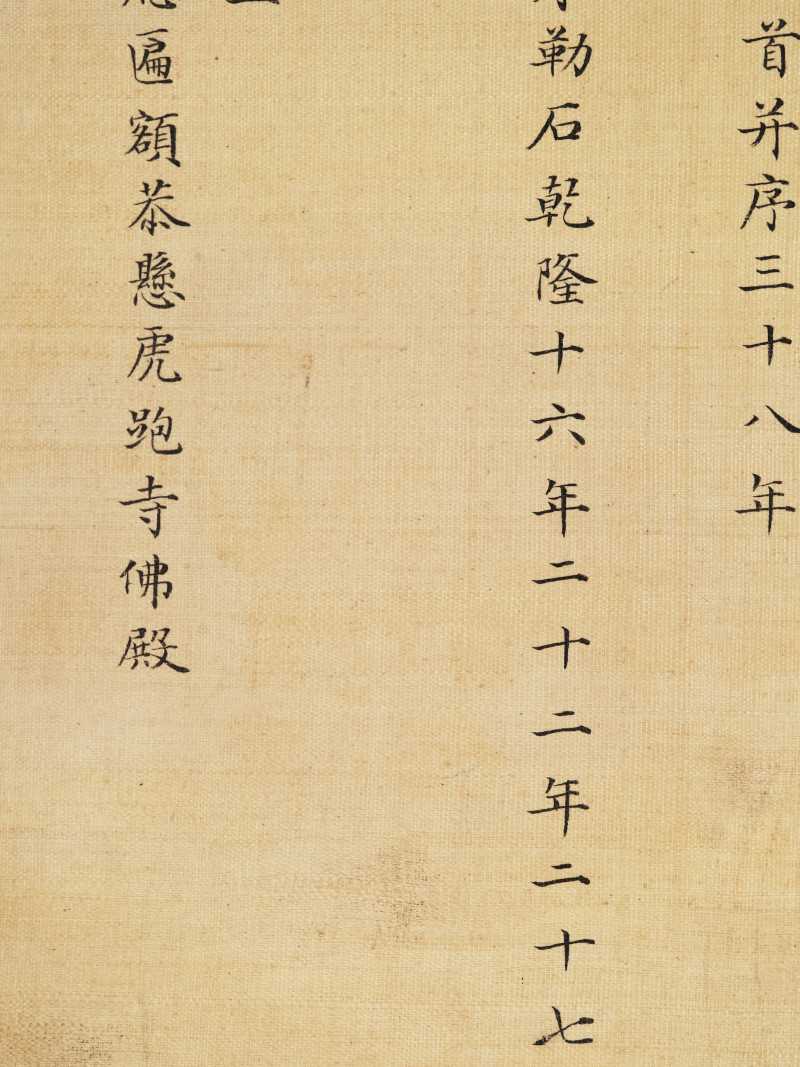 首并序三十八年
勒石乾隆十六年二十二年二十七
匾額恭懸虎跑寺佛殿